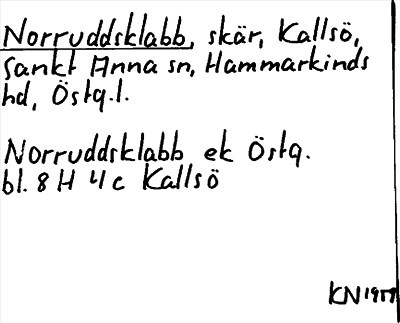 Norruddsklabb, skär, Kallsö,
Sankt Anna sn, Hammarkinds
hd, Östg.l.
Norruddsklabb ek Östg.
bl. 8 H 4 c Kallsö
KN